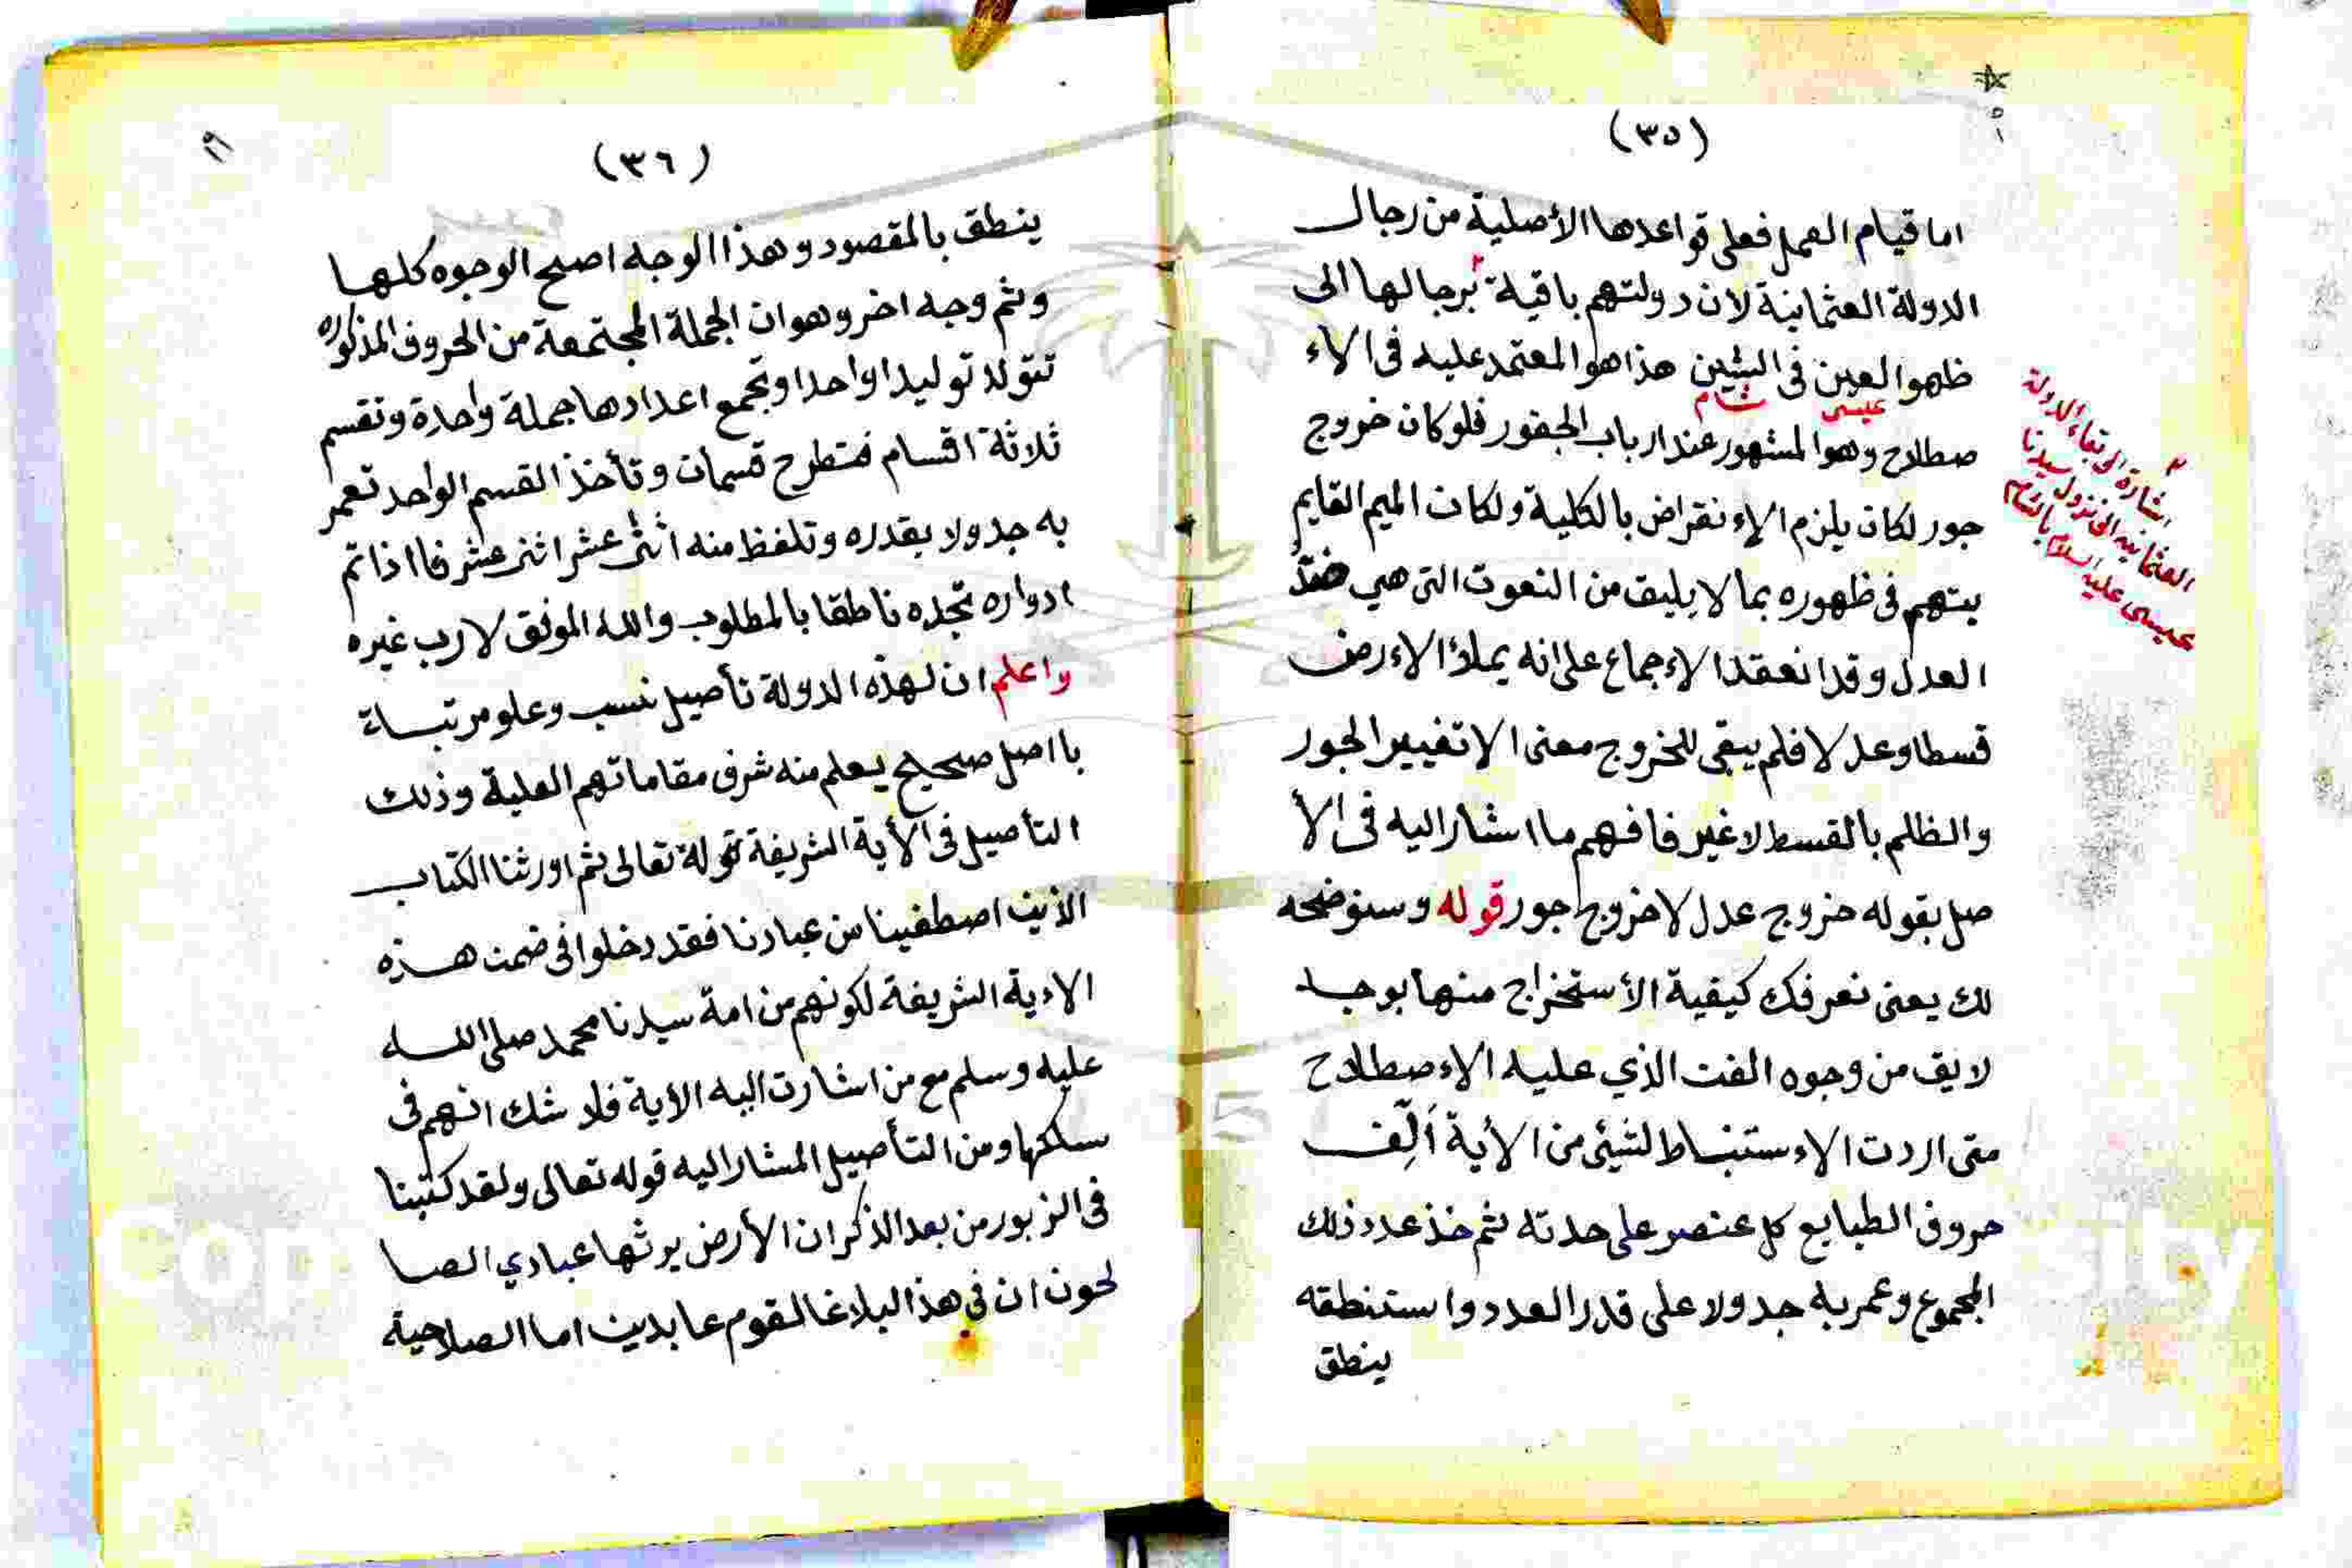 (٣٥)
اما قيام العمل فعلى قواعدها الأصلية من رجال
الدولة العثمانية لان دولتهم باقية ٢ برجالها الى
ظهوا العين فى الشين هذا هو المعتمد عليه فى الاء
عيسى شام
صطلاح وهو المشهور عند ارباب الجفور فلو كان خروج
جور لكان يلزم الاء نقراض بالكلية ولكان الميم القايم
يتهم فى ظهوره بما لا يليق من النعوت التى هي ضد
العدل وقد انعقد الاء جماع على انه يملاؤ الاء رض
قسطا وعدلا فلم يبقى للخروج معنى الا تغيير الجور
والظلم بالقسط لا غير فافهم ما اشار اليه فى الأ
صل بقوله خروج عدل لا خروج جور قوله وسنوضحه
لك يعنى نعرفك كيفية الأستخراج منها بوجه
لايق من وجوه الفن الذي عليه الاء صطلاح
متى اردت الاء ستنباط لشيئ من الأية اَلِّف
حروف الطبايع كل عنصر على حدته ثم خذ عدد ذلك
المجموع وعمر به جدولا على قدر العدد واستنطقه
ينطق
٢
اشارة الى بقاء الدولة
العثمانيه الى نزول سيدنا
عيسى عليه السلام بالشام
(٣٦)
ينطق بالمقصود وهذا الوجه اصح الوجوه كلها
وثم وجه اخر وهو ان الجملة المجتمعة من الحروف المذكوره
تتولد توليدا واحدا وتجمع اعدادها جملة واحدة وتقسم
ثلاثة اقسام فتطرح قسمان وتأخذ القسم الواحد تعمر
به جدولا بقدره وتلفظ منه اثنى عشر اثنى عشر فااذا تم
ادواره تجده ناطقا بالمطلوب والله الموفق لا رب غيره
واعلم ان لهذه الدولة تأصيل نسب وعلو مرتباة
بااصل صحيح يعلم منه شرف مقاماتهم العلية وذلك
التأصيل فى الأية الشريفة قولة تعالى ثم اورثنا الكتاب
الذين اصطفينا من عبادنا فقد دخلوا فى ضمن هذه
الاءية الشريفة لكونهم من امة سيدنا محمد صلى الله
عليه وسلم مع من اشارت اليه الأية فلا شك انهم فى
سلكها ومن التأصيل المشار اليه قوله تعالى ولقد كتبنا
فى الزبور من بعد الذكر ان الأرض يرثها عبادي الصا
لحون ان فى هذا البلاغا لقوم عابدين اما الصلاحية